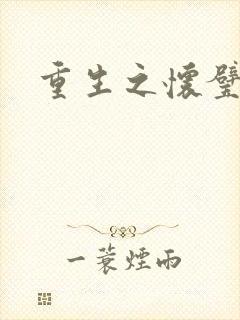 重生之懷璧
一蓑煙雨